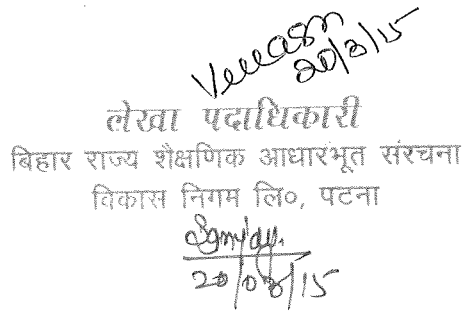 20/3/15
लेखा पदाधिकारी
बिहार राज्य शैक्षणिक आधारभूत संरचना
विकास निगम लि०, पटना
20/03/15